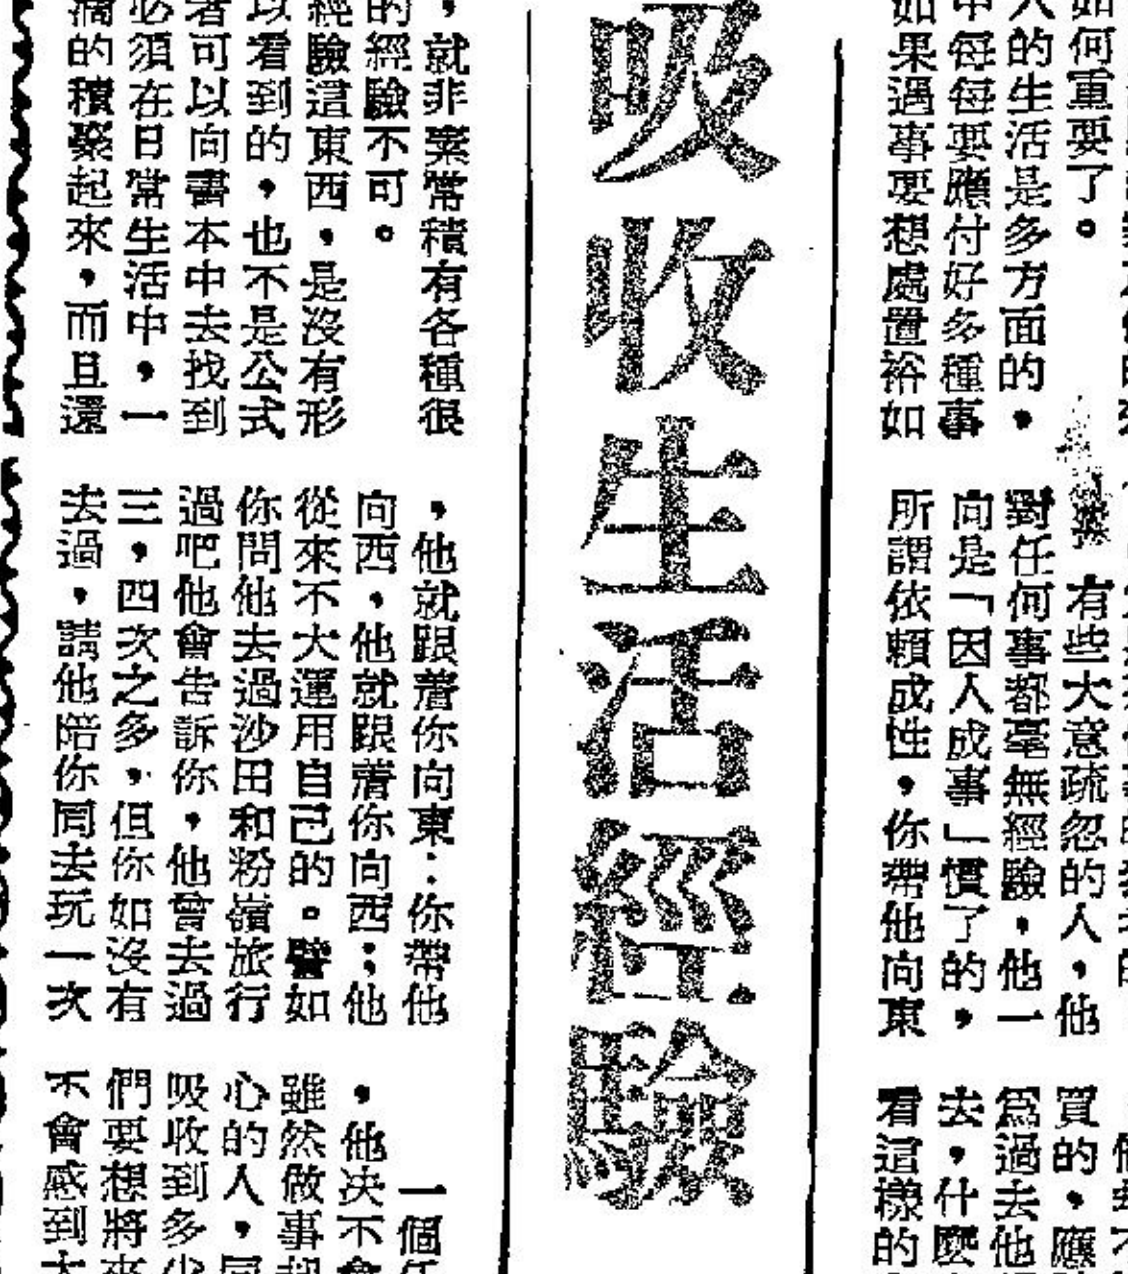 吸收生活經驗
如何重要了。
人的生活是多方面的，
中每每要應付好多種事
如果遇事要想處置裕如
，就非素常積有各種很
的經驗不可。
經驗這東西，是沒有形
以看到的，也不是公式
者可以向書本中去找到
必須在日常生活中，一
滴的積聚起來，而且還
有些大意疏忽的人，他
對任何事都毫無經驗，他一
向是「因人成事」慣了的，
所謂依賴成性，你帶他向東
，他就跟着你向東：你帶他
向西，他就跟着你向西；他
從來不大運用自己的。譬如
你問他去過沙田和粉嶺旅行
過吧他會告訴你，他曾去過
三，四次之多，但你如沒有
去過，請他陪你同去玩一次
買的，應
爲過去他
去，什麽
看這樣的
一個
，他决不會
雖然做事
心的人，
吸收到多少
們要想將來
不會感到